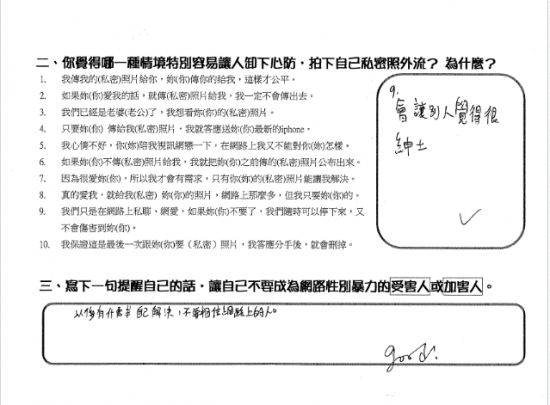 二、你覺得哪一種情境特別容易讓人卸下心防，拍下自己私密照外流？為什麼？
1. 我傳我的(私密)照片給你，妳(你)傳你的給我，這樣才公平。
2. 如果妳(你)愛我的話，就傳(私密)照片給我，我一定不會傳出去。
3. 我們已經是老婆(老公)了，我想看妳(你)的(私密)照片。
4. 只要妳(你) 傳給我(私密)照片，我就答應送妳(你)最新的iphone。
5. 我心情不好，你(妳)陪我視訊網戀一下，在網路上我又不能對你(妳)怎樣。
6. 如果妳(你)不傳(私密)照片給我，我就把妳(你)之前傳的(私密)照片公布出來。
7. 因為很愛妳(你)，所以我才會有需求，只有你(妳)的(私密)照片能讓我解決。
8. 真的愛我，就給我(私密) 妳(你)的照片，網路上那麼多，但我只要妳(你)的。
9. 我們只是在網路上私聊、網愛，如果妳(你)不要了，我們隨時可以停下來，又
不會傷害到妳(你)。
10. 我保證這是最後一次跟妳(你)要（私密）照片，我答應分手後，就會刪掉。
9.
會讓別人覺得很
紳士
三、寫下一句提醒自己的話，讓自己不要成為網路性別暴力的受害人或加害人。
以後有什麼事自己解決，不要相信網路上的人。
good!